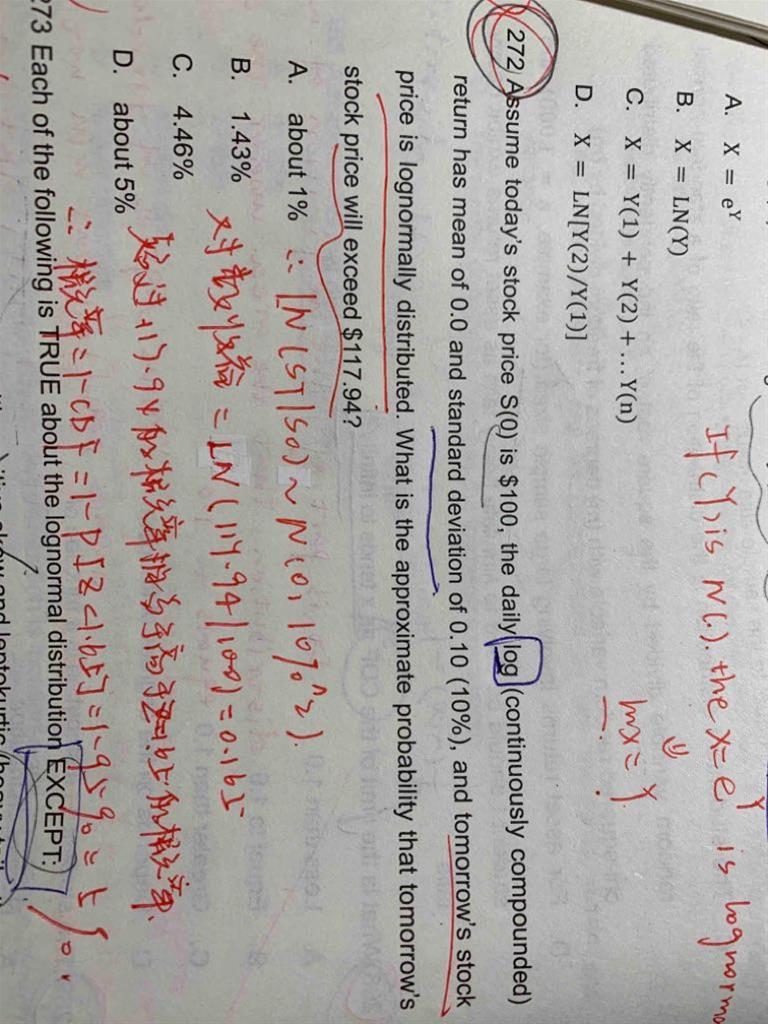 A. X = e^Y
B. X = LN(Y)
C. X = Y(1) + Y(2) + … Y(n)
D. X = LN[Y(2)/Y(1)]
If (Y) is N(.). the x = e^Y is lognorma
⇓
lnx = Y.
272 Assume today's stock price S(0) is $100, the daily log (continuously compounded)
return has mean of 0.0 and standard deviation of 0.10 (10%), and tomorrow's stock
price is lognormally distributed. What is the approximate probability that tomorrow's
stock price will exceed $117.94?
A. about 1%
B. 1.43%
C. 4.46%
D. about 5%
∴ LN(ST/S0) ~ N(0, 10%^2).
对数价 = LN(117.94/100) = 0.165
超过117.94的概率相当于高于1.65的概率.
∴ 概率 = 1-CDF = 1-P[Z<1.65] = 1-95% = 5%.
273 Each of the following is TRUE about the lognormal distribution EXCEPT: